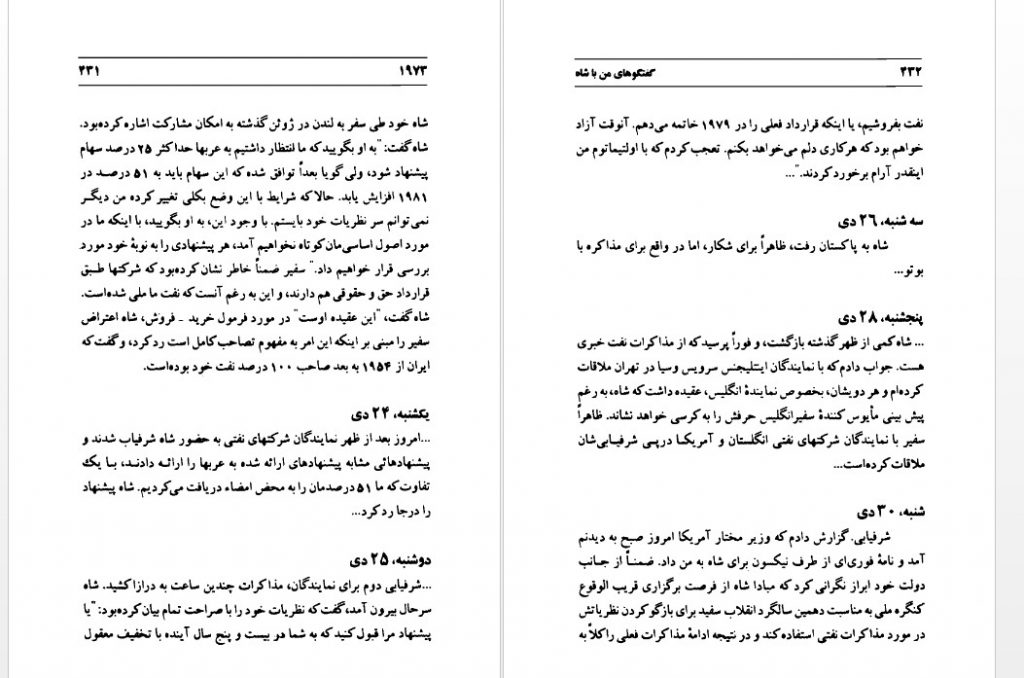 ۱۹۷۳ ۴۳۱
شاه خود طی سفر به لندن در ژوئن گذشته به امکان مشارکت اشاره کرده‌بود.
شاه گفت: "به او بگویید که ما انتظار داشتیم به عربها حداکثر ۲۵ درصد سهام
پیشنهاد شود، ولی گویا بعداً توافق شده که این سهام باید به ۵۱ درصد در
۱۹۸۱ افزایش یابد. حالا که شرایط با این وضع بکلی تغییر کرده من دیگر
نمی‌توانم سر نظریات خود بایستم. با وجود این، به او بگویید، با اینکه ما در
مورد اصول اساسی‌مان کوتاه نخواهیم آمد، هر پیشنهادی را به نوبهٔ خود مورد
بررسی قرار خواهیم داد." سفیر ضمناً خاطر نشان کرده‌بود که شرکتها طبق
قرارداد حق و حقوقی هم دارند، و این به رغم آنست که نفت ما ملی شده‌است.
شاه گفت، "این عقیده اوست" در مورد فرمول خرید - فروش، شاه اعتراض
سفیر را مبنی بر اینکه این امر به مفهوم تصاحب کامل است رد کرد، و گفت که
ایران از ۱۹۵۴ به بعد صاحب ۱۰۰ درصد نفت خود بوده‌است.
یکشنبه، ۲۴ دی
...امروز بعد از ظهر نمایندگان شرکتهای نفتی به حضور شاه شرفیاب شدند و
پیشنهادهائی مشابه پیشنهادهای ارائه شده به عربها را ارائه دادند، با یک
تفاوت که ما ۵۱ درصدمان را به محض امضاء دریافت می‌کردیم. شاه پیشنهاد
را درجا رد کرد...
دوشنبه، ۲۵ دی
...شرفیابی دوم برای نمایندگان، مذاکرات چندین ساعت به درازا کشید. شاه
سرحال بیرون آمد، گفت که نظریات خود را با صراحت تمام بیان کرده‌بود: "یا
پیشنهاد مرا قبول کنید که به شما دو بیست و پنج سال آینده با تخفیف معقول
۴۳۲ گفتگوهای من با شاه
نفت بفروشیم، یا اینکه قرارداد فعلی را در ۱۹۷۹ خاتمه می‌دهم. آنوقت آزاد
خواهم بود که هرکاری دلم می‌خواهد بکنم. تعجب کردم که با اولتیماتوم من
اینقدر آرام برخورد کردند."...
سه شنبه، ۲۶ دی
شاه به پاکستان رفت، ظاهراً برای شکار، اما در واقع برای مذاکره با
بوتو...
پنجشنبه، ۲۸ دی
... شاه کمی از ظهر گذشته بازگشت، و فوراً پرسید که از مذاکرات نفت خبری
هست. جواب دادم که با نمایندگان اینتلیجنس سرویس وسیا در تهران ملاقات
کرده‌ام و هر دویشان، بخصوص نمایندهٔ انگلیس، عقیده داشت که شاه، به رغم
پیش بینی مأیوس کنندهٔ سفیرانگلیس حرفش را به کرسی خواهد نشاند. ظاهراً
سفیر با نمایندگان شرکتهای نفتی انگلستان و آمریکا درپی شرفیابی‌شان
ملاقات کرده‌است...
شنبه، ۳۰ دی
شرفیابی. گزارش دادم که وزیر مختار آمریکا امروز صبح به دیدنم
آمد و نامهٔ فوری‌ای از طرف نیکسون برای شاه به من داد. ضمناً از جانب
دولت خود ابراز نگرانی کرد که مبادا شاه از فرصت برگزاری قریب الوقوع
کنگره ملی به مناسبت دهمین سالگرد انقلاب سفید برای بازگو کردن نظریاتش
در مورد مذاکرات نفتی استفاده کند و در نتیجه ادامهٔ مذاکرات فعلی راکلاً به